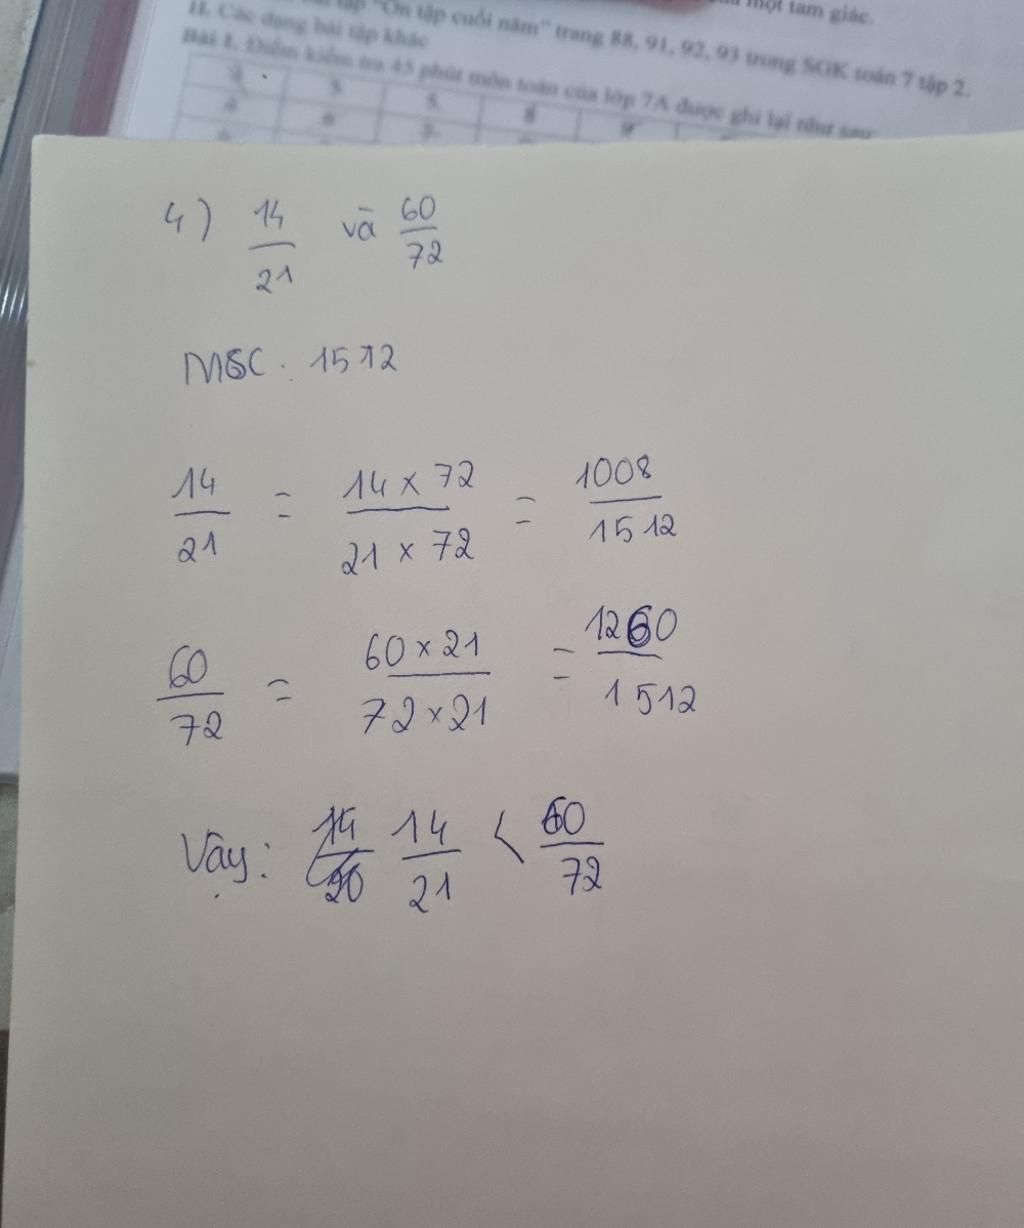 một tam giác.
tập "Ôn tập cuối năm" trang 88, 91, 92, 93 trong SGK toán 7 tập 2.
II. Các dạng bài tập khác
Bài 1. Điểm kiểm tra 45 phút môn toán của lớp 7A được ghi lại như sau:
4) 14/21 và 60/72
MSC: 1512
14/21 = 14 x 72/21 x 72 = 1008/1512
60/72 = 60 x 21/72 x 21 = 1260/1512
Vậy: 14/21 < 60/72